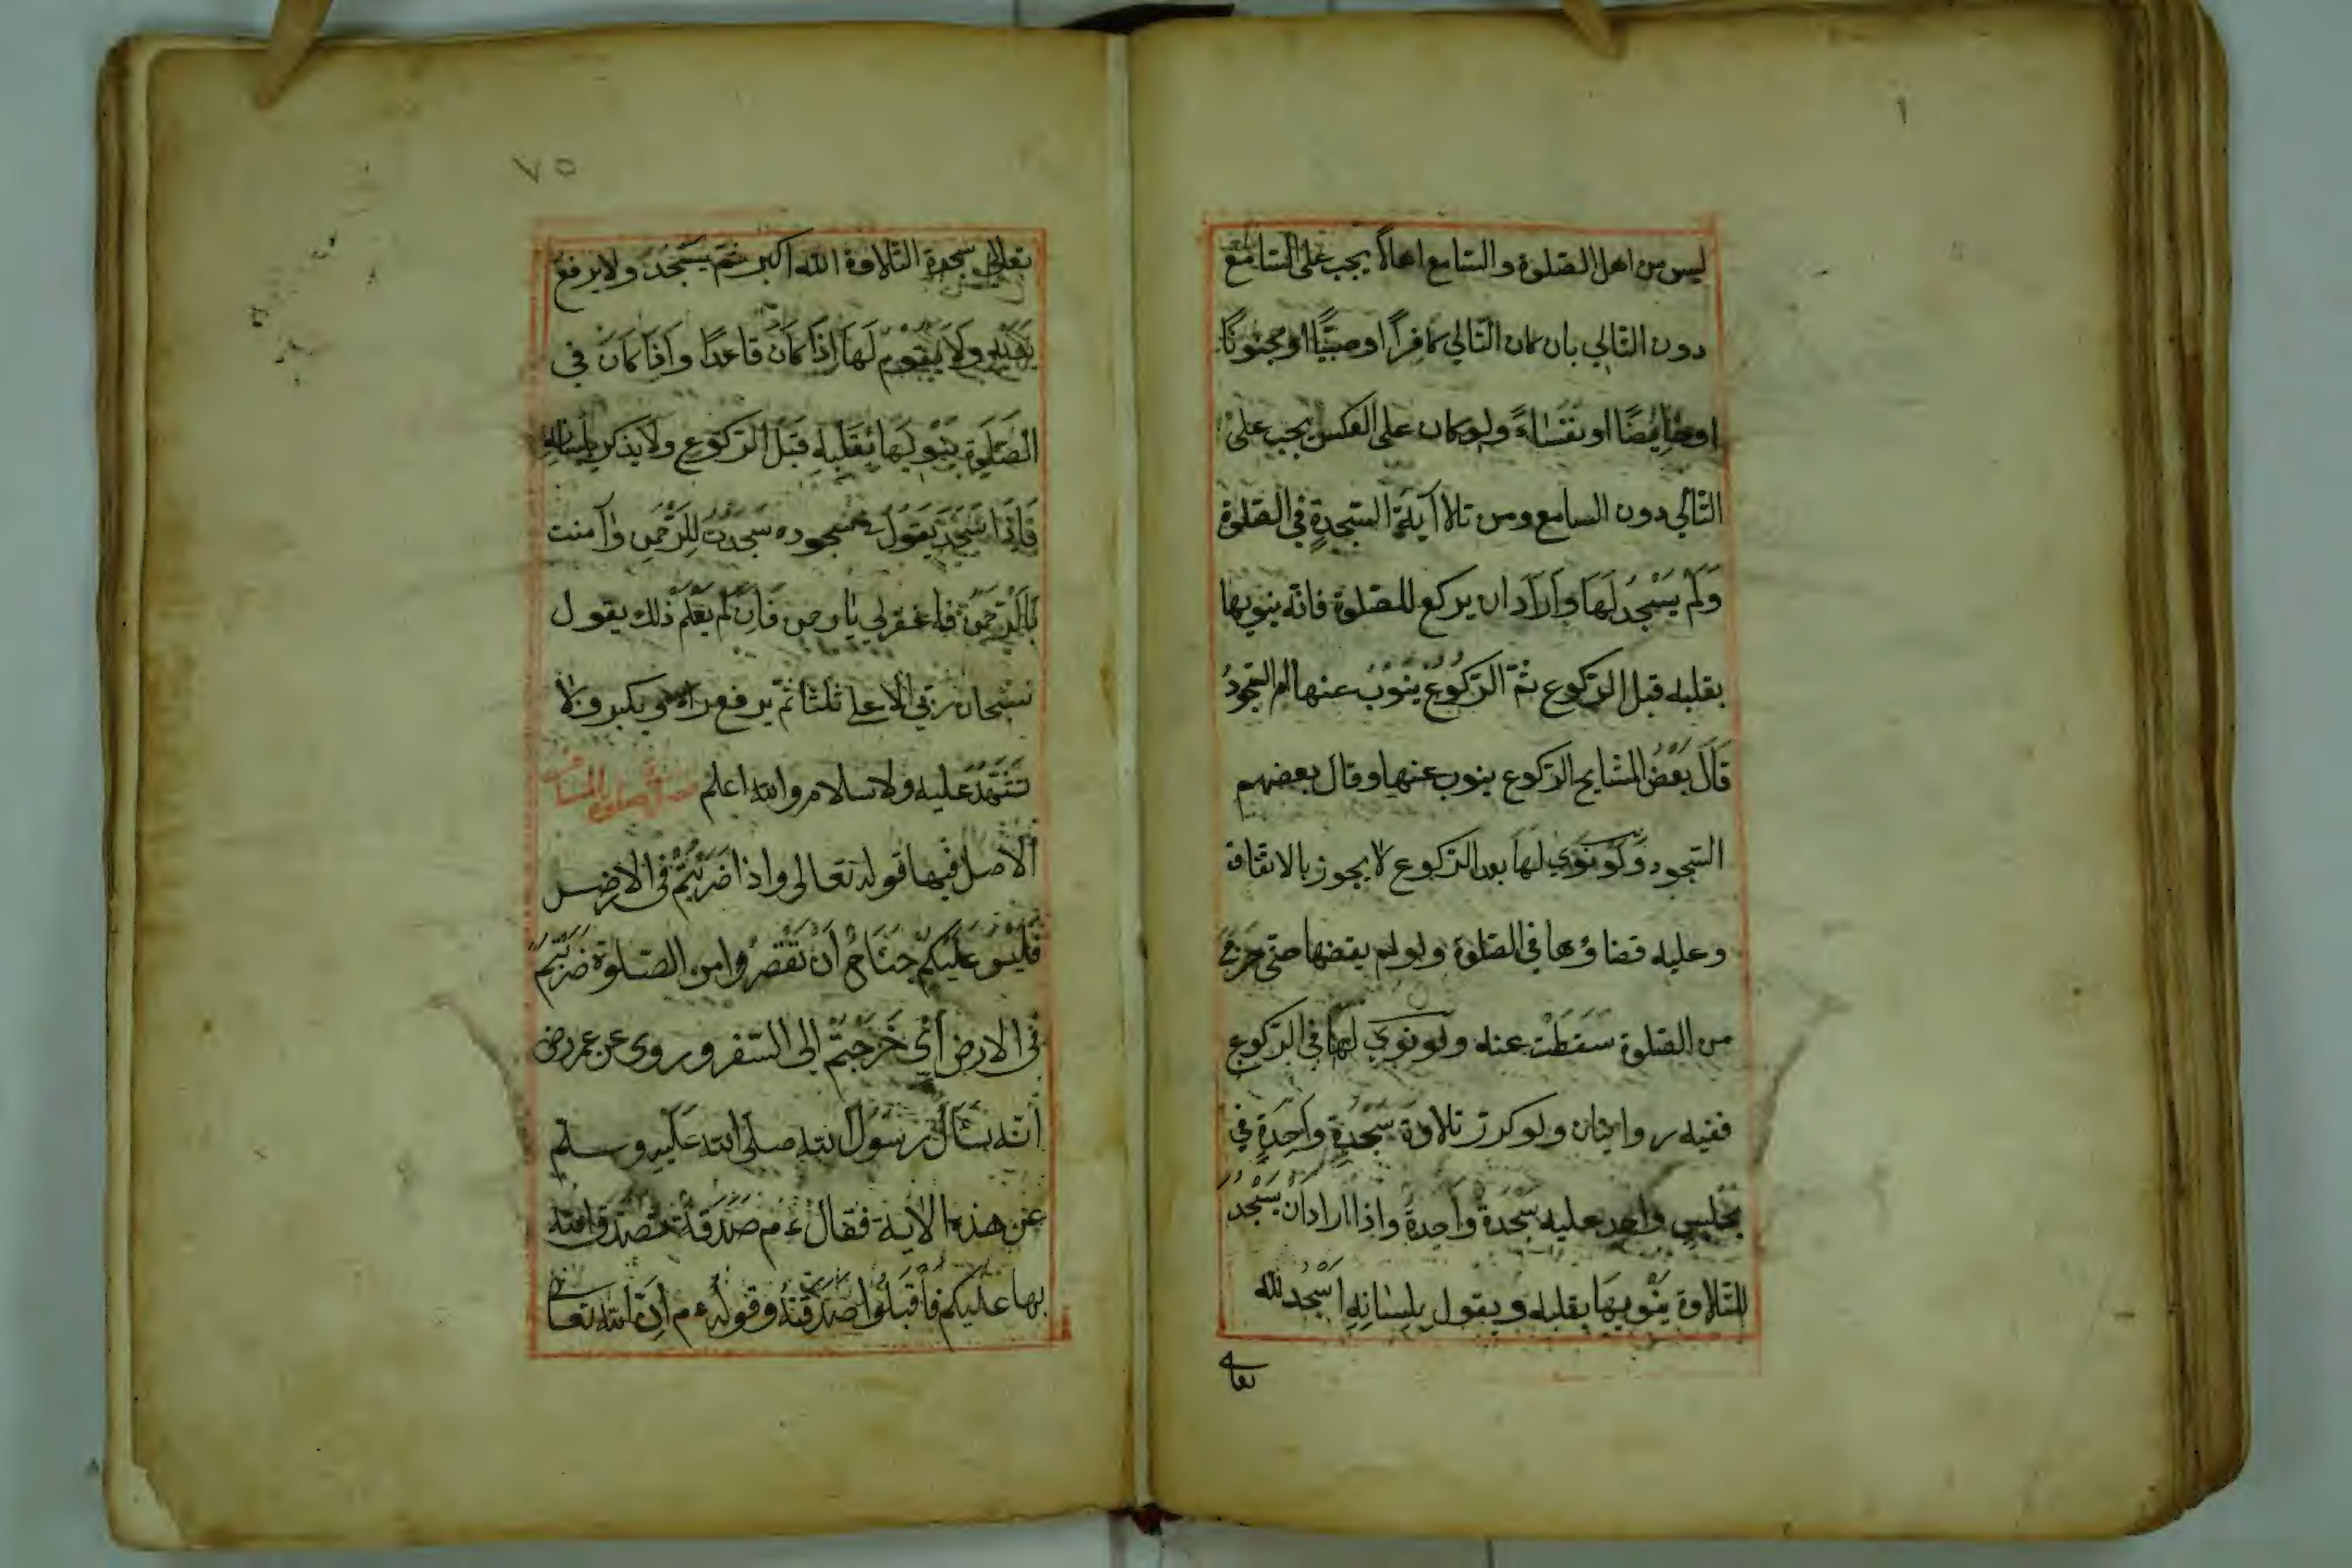 ليس من اهل الصلوة والسامع اهلاً يجب على السامع
دون التالي بان كان التالي كافراً او صبيًّا او مجنونًا
او حايضًا او نفساءً ولو كان على العكس يجب على
التالي دون السامع ومن تلا آية السجدةِ في الصلوة
وَلَم يَسْجُد لَهَا وَاَرَادَ ان يركع للصلوة فانّه ينوبها
بقلبه قبل الركوع ثمّ الركوع ينوب عنها ام السجودُ
قَالَ بَعْضُ المشايخ الركوع ينوب عنها وقال بعضهم
السجود وَلَو نَوَي لهَا بعد الركوع لا يجوز بالاتفاق
وعليه قضاؤها في الصلوة ولو لم يقضها حتى خرج
من الصلوة سَقَطَتْ عنه ولو نوي لها في الركوع
ففيه روايتان ولو كرر تلاوة سَجْدَةٍ وَاحِدَةٍ في
مجلسٍ واحد عليه سَجْدَةٌ وَاحِدَةٌ واذا اراد اَنْ يَسْجُدَ
للتلاوة يَنْوِيهَا بقلبه ويقول بلِسَانِهِ اَسْجُدُ لله
تعالى
٧٥
تعالى سجدة التلاوة الله اكبر ثم يَسْجُدُ ولا يرفع
يديه ولا يقوم لَهَا اِذَا كَانَ قاعدًا وَاِذَا كَانَ في
الصَّلَوة ينوبها بقَلْبِهِ قَبْلَ الركوع ولا يذكر بلسانه
فَاِذَا سَجَدَ يَقُولُ في سجوده سَجَدْتُ لِلرَّحْمَنِ وَآمنت
بِالرَّحْمَنِ فاغفرلي يا رحمن فَاِنْ لَم يَعْلَمْ ذلك يقول
سبحان ربي الاعلى ثلثا ثمّ يرفع راسه ويكبر ولا
تَشَهُّدَ عليه ولا سلام والله اعلم فصل في صلوة المسافر
اَلاَصل فيها قوله تعالى واذا ضَرَبْتُمْ في الارض
فَلَيْسَ عَلَيْكُمْ جُنَاحٌ اَنْ تَقْصُرُوا من الصلوة ضَرَبْتُمْ
في الارض اَيْ خَرَجْتُمْ الى السفر وروى عن عمر رض
انّه سَأَلَ رَسُولَ الله صلى الله عَلَيْهِ وسلم
عَنْ هذه الاية فقال ءم صَدَقَةٌ تَصَدَّقَ الله
بها عليكم فَاقْبَلُوا صَدَقَتَهُ وقوله ءم اِنَّ الله تعالى